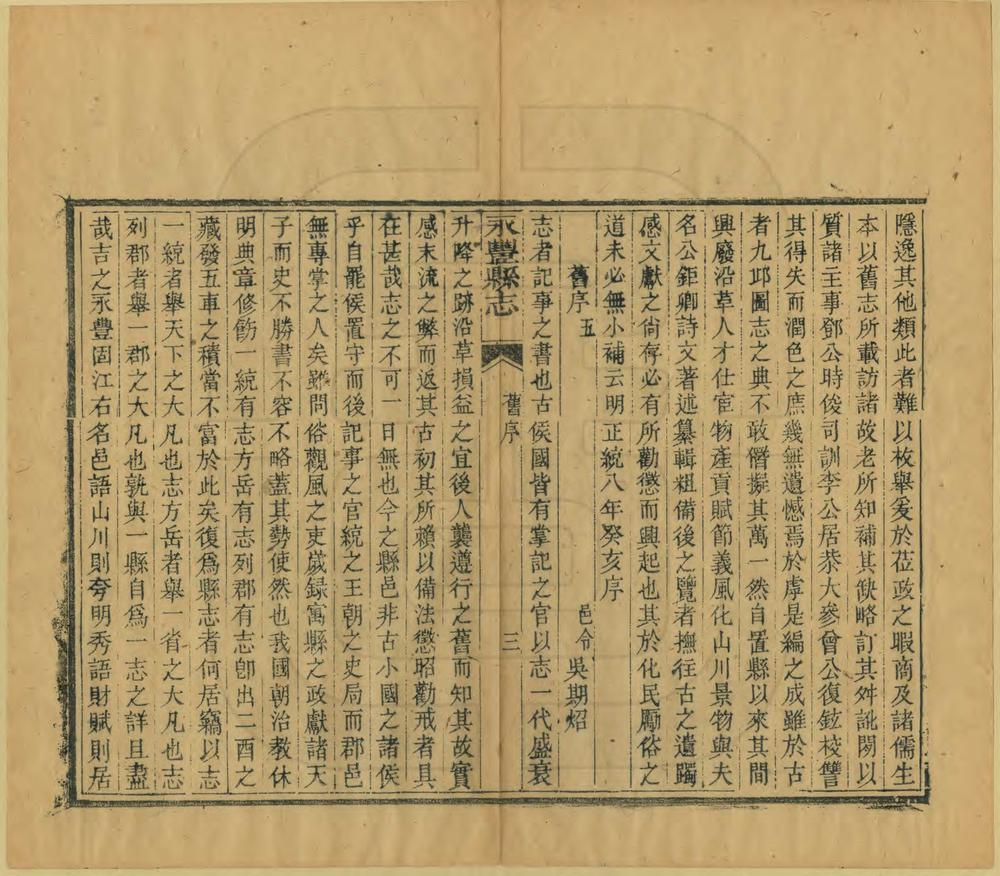 隱逸其他類此者難以枚舉爰於莅政之暇商及諸儒生
本以舊志所載訪諸故老所知補其缺略訂其舛訛閱以
質諸主事鄧公時俊司訓李公居恭大參曾公復鉉校讐
其得失而潤色之庶幾無遺憾焉於虖是編之成雖於古
者九邱圖志之典不敢僭擬其萬一然自置縣以來其間
興廢沿革人才仕宦物產貢賦節義風化山川景物與夫
名公鉅卿詩文著述纂輯粗備後之覽者撫往古之遺躅
感文獻之尚存必有所勸懲而興起也其於化民勵俗之
道未必無小補云明正統八年癸亥序
舊序五 邑令吳期炤
志者記事之書也古侯國皆有掌記之官以志一代盛衰
永豐縣志 舊序 三
升降之跡沿革損益之宜後人襲遵行之舊而知其故實
感末流之弊而返其古初其所賴以備法懲昭勸戒者具
在甚哉志之不可一日無也今之縣邑非古小國之諸侯
乎自罷侯置守而後記事之官統之王朝之史局而郡邑
無專掌之人矣雖問俗觀風之吏歲錄寓縣之政獻諸天
子而史不勝書不容不略蓋其勢使然也我國朝治教休
明典章修飭一統有志方岳有志列郡有志卽出二酉之
藏發五車之積當不富於此矣復爲縣志者何居竊以志
一統者舉天下之大凡也志方岳者舉一省之大凡也志
列郡者舉一郡之大凡也孰與一縣自爲一志之詳且盡
哉吉之永豐固江右名邑語山川則夸明秀語財賦則居